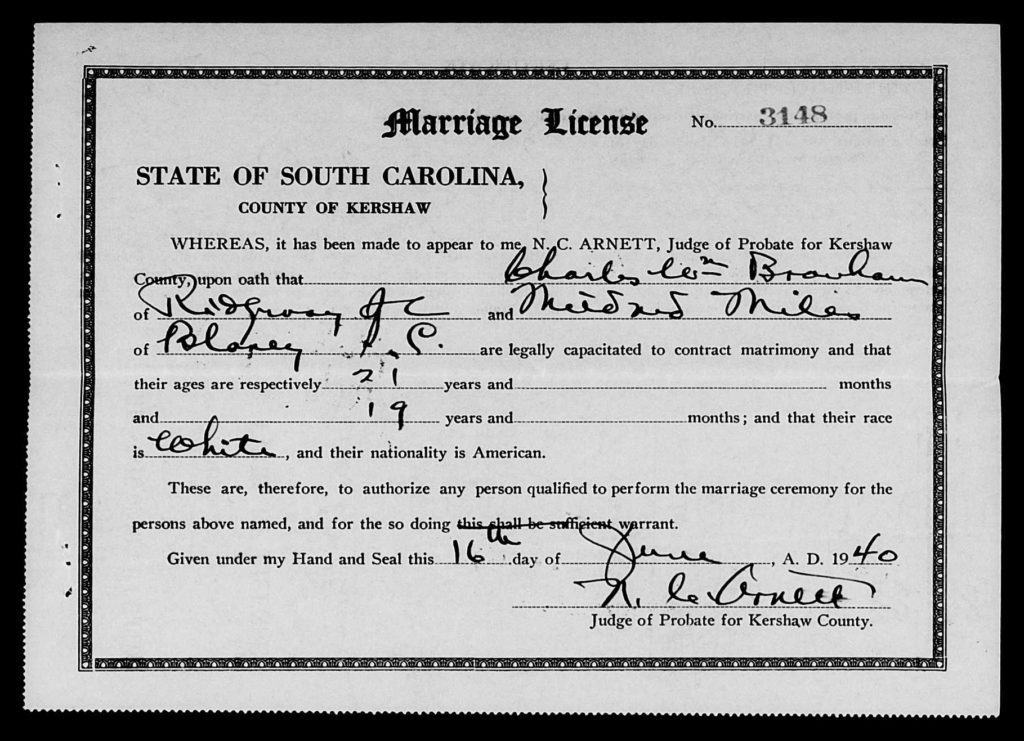 Marriage License No. 3148
STATE OF SOUTH CAROLINA, }
COUNTY OF KERSHAW
WHEREAS, it has been made to appear to me, N. C. ARNETT, Judge of Probate for Kershaw
County, upon oath that Charles Wm Branham
of Ridgeway S C and Mildred Miles
of Blaney S. C. are legally capacitated to contract matrimony and that
their ages are respectively 21 years and months
and 19 years and months; and that their race
is White, and their nationality is American.
These are, therefore, to authorize any person qualified to perform the marriage ceremony for the
persons above named, and for the so doing this shall be sufficient warrant.
Given under my Hand and Seal this 16th day of June, A. D. 1940
N. C. Arnett
Judge of Probate for Kershaw County.